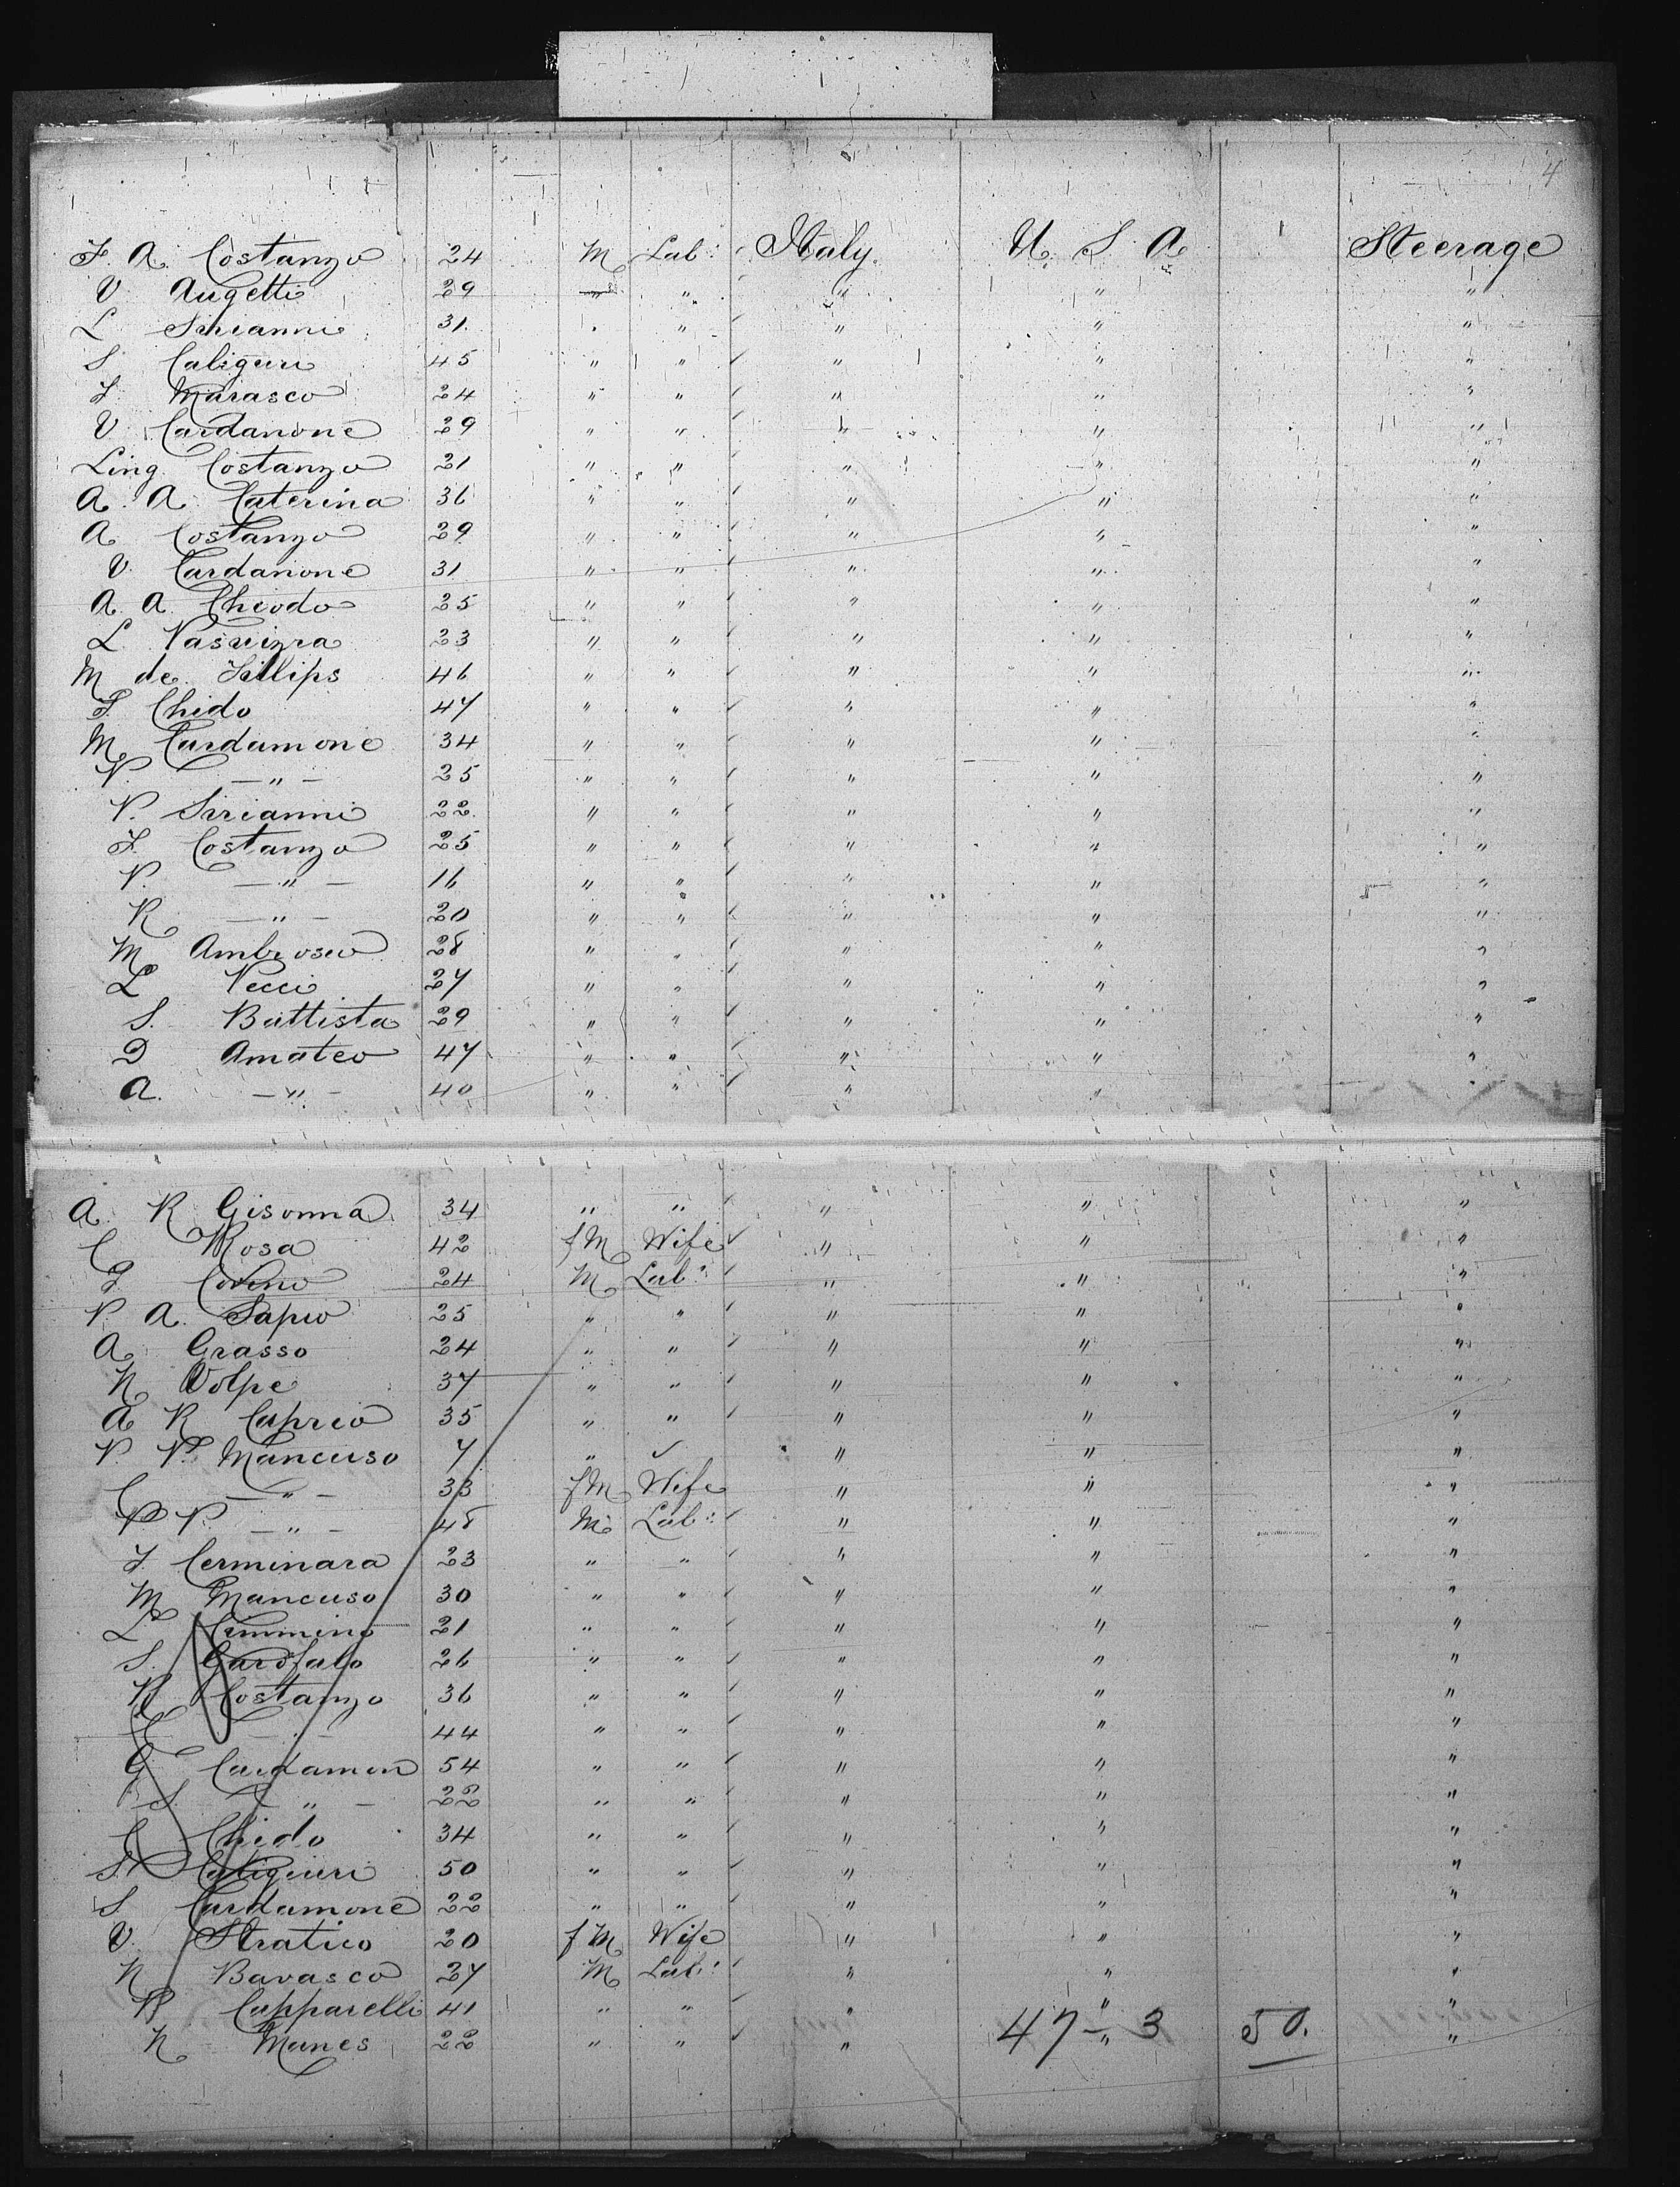 4
F. A. Costanzo 24 M Lab: Italy. U. S. A. Steerage
V Augetti 29 " " " " "
L Sirianni 31. " " " " "
S Caligure 45 " " " " "
F. Marasco 24 " " " " "
V Cardanone 29 " " " " "
Ling. Costanzo 21 " " " " "
A. A. Caterina 36 " " " " "
A Costanzo 29 " " " " "
V. Cardanone 31 " " " " "
A. A. Chiodo 25 " " " " "
L. 23 " " " " "
M de Fillips 46 " " " " "
F. Chido 47 " " " " "
M Cardamone 34 " " " " "
N. — " — 25 " " " " "
N. Sirianni 22. " " " " "
F. Costanzo 25 " " " " "
N. — " — 16 " " " " "
R — " — 20 " " " " "
M Ambrosio 28 " " " " "
L Vecci 27 " " " " "
S. Battista 29 " " " " "
D Amateo 47 " " " " "
A. — " — 40 " " " " "
A. R Gisonna 34 " " " " "
C Rosa 42 fM Wife " " "
F. 24 M Lab: " " "
P. A. Sapio 25 " " " " "
A Grasso 24 " " " " "
N Volpe 37 " " " " "
A R Caprio 35 " " " " "
P. P. Mancuso 7 " " " "
C — " — 33 fM Wife " " "
P P. — " — 48 M Lab: " " "
F. Cerminara 23 " " " " "
M Mancuso 30 " " " " "
L Cimmino 21 " " " " "
S. Garofalo 26 " " " " "
R Costanzo 36 " " " " "
— " — 44 " " " " "
G Cardamon 54 " " " " "
S. — " — 22 " " " " "
C Chido 34 " " " " "
S. Caligiuri 50 " " " " "
S Cardamone 22 " " " " "
V. Stratico 20 fM Wife " " "
N Bavasco 27 M Lab: " " "
R Capparelli 41 " " " " "
N Manes 22 " " " " "
47 — 3 50.